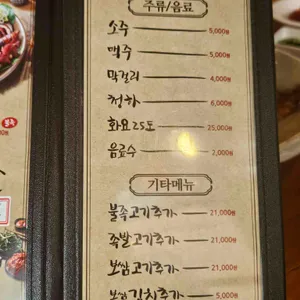 주류/음료
소주 5,000원
맥주 5,000원
막걸리 4,000원
청하 6,000원
화요25도 25,000원
음료수 2,000원
기타메뉴
불족고기추가 21,000원
족발고기추가 21,000원
보쌈고기추가 21,000원
보쌈김치추가 5,000원